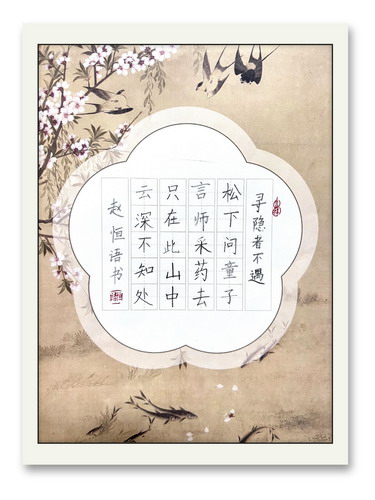 寻隐者不遇
松下问童子
言师采药去
只在此山中
云深不知处
赵恒语书